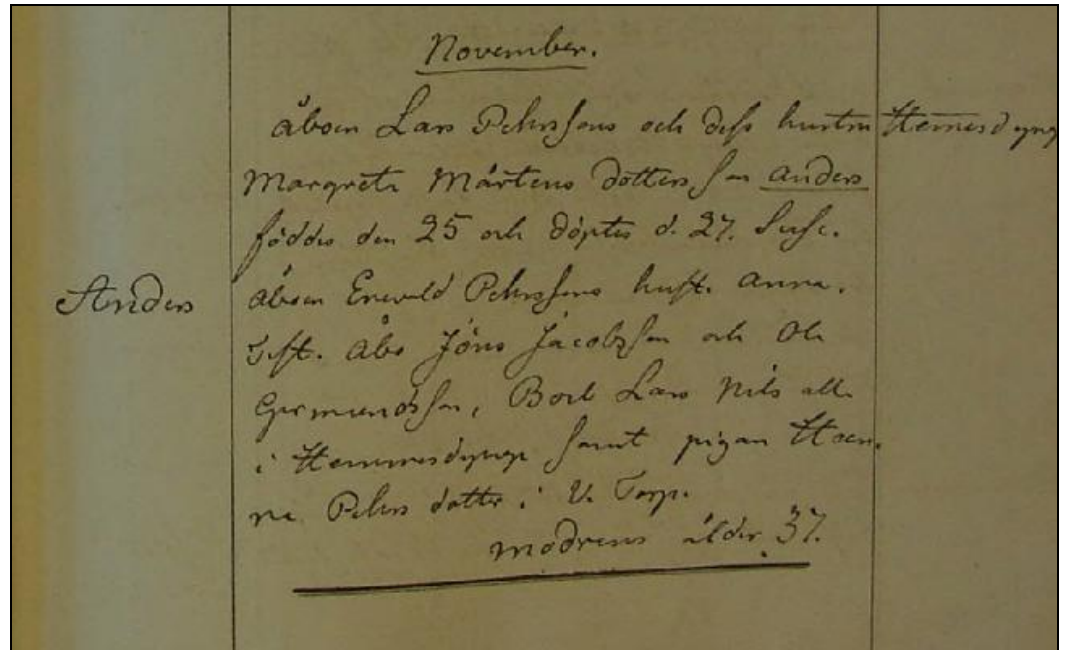 November.
åboen Lars Pehrssons och dess hustru Hemmesdyng
Margreta Mårtens dotters son Anders
föddes den 25 och döptes d. 27. Susc.
Anders
åboen Enevald Pehrssons hust. Anna.
Test. Åbo Jöns Jacobsson och Ole
Germundsson, Boel Lars Nils alla
i Hemmesdynge samt pigan Han-
na Pehrs dotter i V. Torp.
modrens ålder 37.